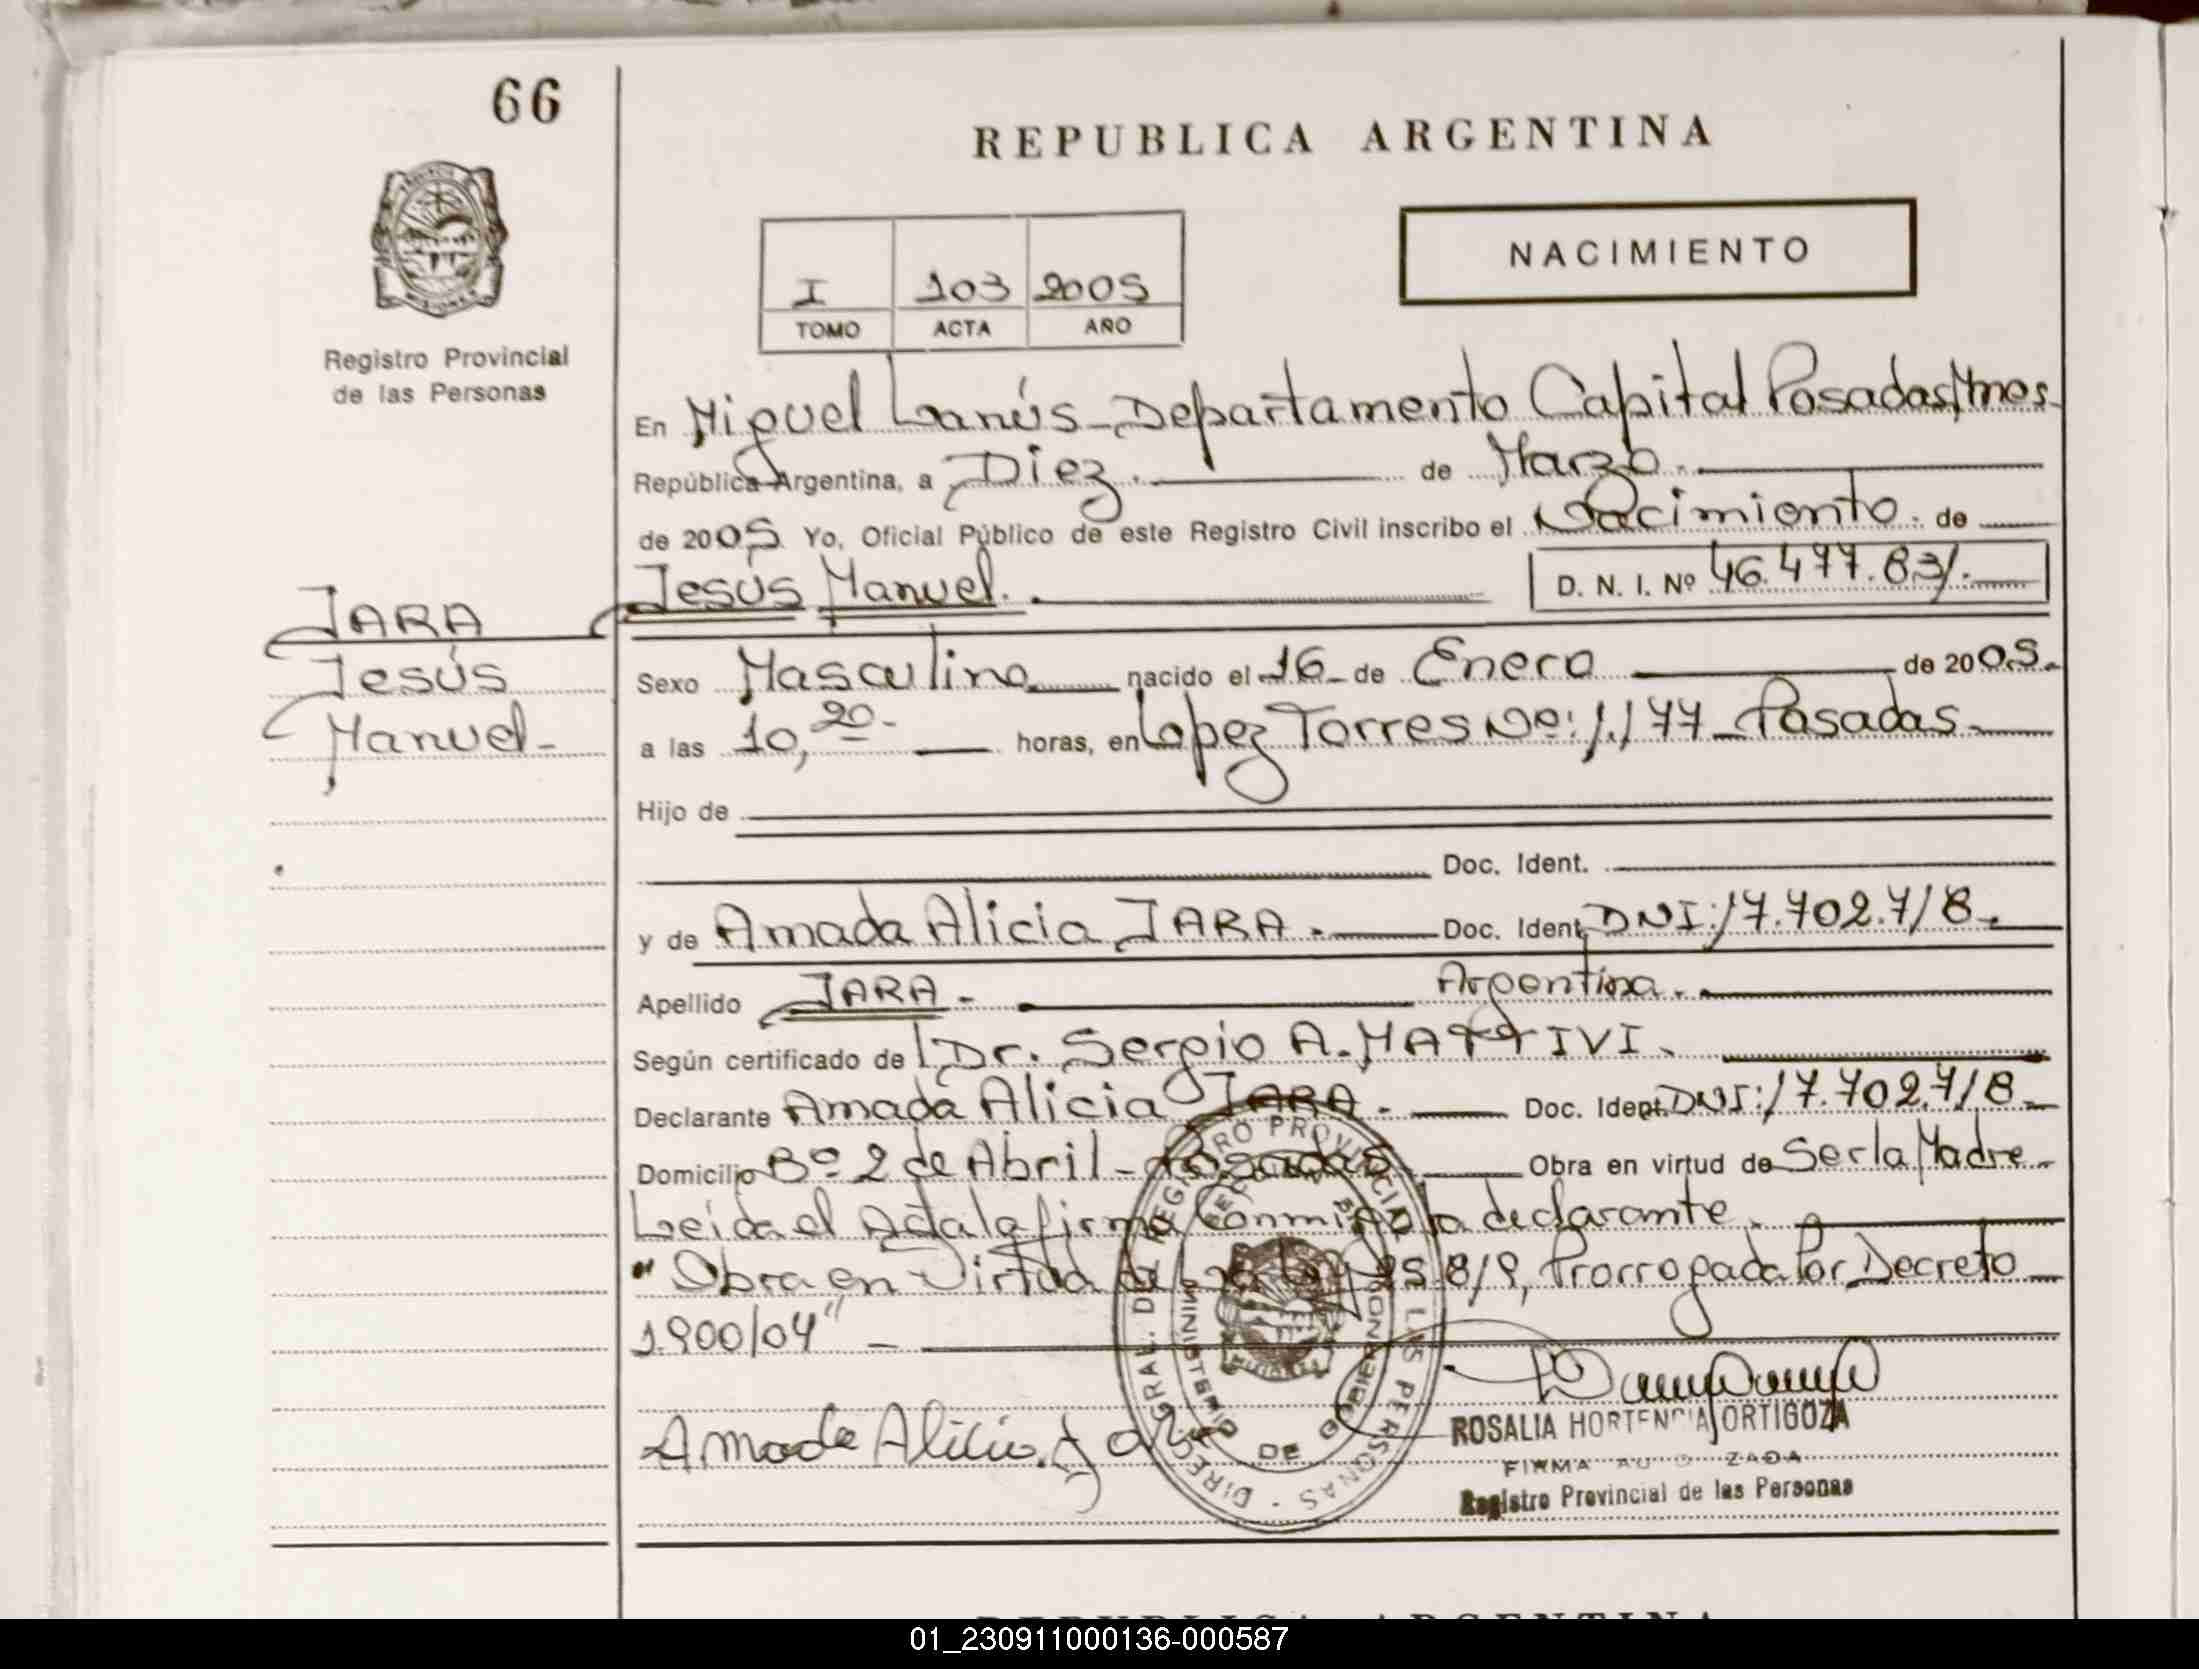 66
REPUBLICA ARGENTINA
NACIMIENTO
I 103 2005
TOMO ACTA AÑO
Registro Provincial
de las Personas
En Miguel Lanús - Departamento Capital Posadas, Mnes.
República Argentina, a Diez. de Marzo.
de 2005 Yo, Oficial Público de este Registro Civil inscribo el Nacimiento. de
Jesús Manuel. D. N. I. Nº 46.477.831.
JARA
Jesús
Manuel-
Sexo Masculino nacido el 16 de Enero de 2005.
a las 10,20- horas, en Lopez Torres Nº: 1.177 - Posadas.
Hijo de
Doc. Ident.
y de Amada Alicia JARA. Doc. Ident. DNI: 17.702.718.
Apellido JARA - Argentina.
Según certificado de Dr. Sergio A. MATTIVI.
Declarante Amada Alicia JARA. Doc. Ident. DNI: 17.702.718-
Domicilio Bº 2 de Abril - Posadas. Obra en virtud de Ser la Madre.
Leida el Acta la firma Conmigo la declarante.
"Obra en Virtud de la Ley 25.819, Prorrogada Por Decreto
1.900/04" -
Amada Alicia Jara
ROSALIA HORTENCIA ORTIGOZA
FIRMA AUTORIZADA
Registro Provincial de las Personas
DIREC. GRAL. DEL REGISTRO PROVINCIAL DE LAS PERSONAS
MINISTERIO DE GOBIERNO
MISIONES
REPUBLICA ARGENTINA
01_230911000136-000587